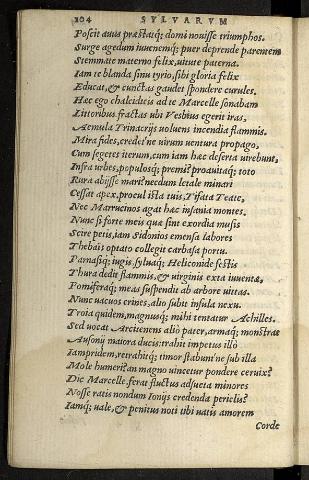 204 SYLVARVM
Poscit auus præstatq; domi nouisse triumphos.
Surge agedum iuuenemq; puer deprende parentem
Stemmate materno felix, uirtute paterna.
Iam te blanda sinu tyrio, sibi gloria felix
Educat, & cunctas gaudet spondere curules.
Hæc ego chalcidicis ad te Marcelle sonabam
Littoribus fractas ubi Vesbius egerit iras,
Aemula Trinacrijs uoluens incendia flammis.
Mira fides, credet'ne uirum uentura propago.
Cum segetes iterum, cum iam hæc deserta uirebunt,
Infra urbes, populosq; premi? proauitaq; toto
Rura abijsse mari? necdum letale minari
Cessat apex. procul ista tuis, Tifata Teate,
Nec Marrucinos agat hæc insania montes.
Nunc si forte meis quæ sint exordia musis
Scire petis, iam Sidonios emensa labores
Thebais optato collegit carbasa portu.
Parnasiq; iugis, syluaq; Heliconide festis
Thura dedit flammis, & uirginis exta iuuencæ,
Pomiferaq; meas suspendit ab arbore uittas.
Nunc uacuos crines, alio subit insula nexu.
Troia quidem, magnusq; mihi tentatur Achilles.
Sed uocat Arcitenens alio pater, armaq; monstrat
Ausonij maiora ducis: trahit impetus illò
Iampridem, retrahitq; timor stabunt'ne sub illa
Mole humeri? an magno uincetur pondere ceruix?
Dic Marcelle. ferat fluctus adsueta minores
Nosse ratis nondum Ionijs credenda periclis?
Iamq; uale, & penitus noti tibi uatis amorem
Corde